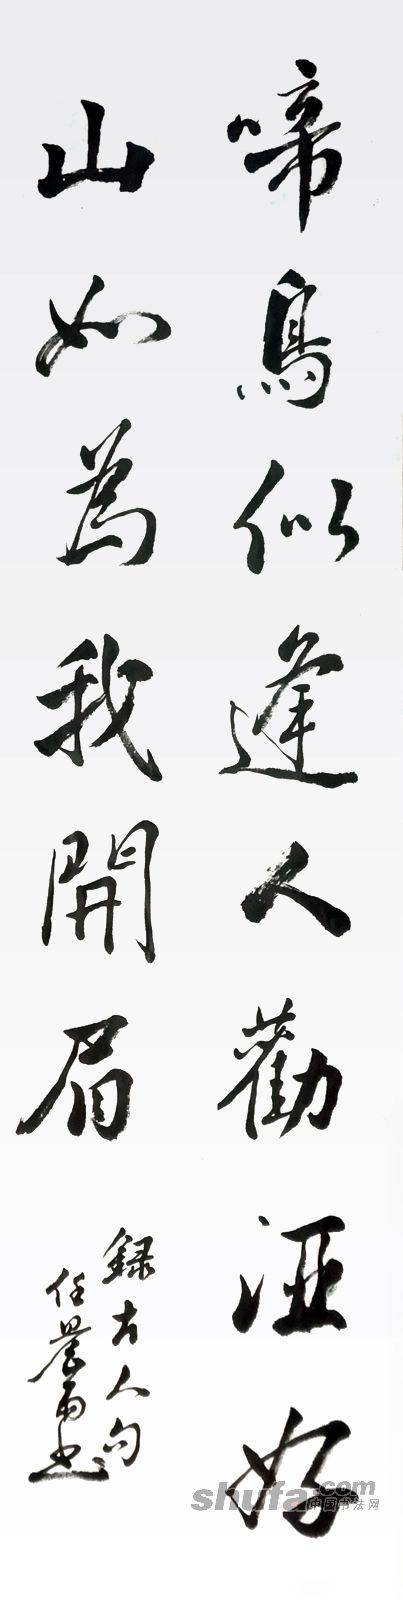 啼鳥似逢人勸酒好
山如為我開眉
録古人句
任 書
shufa.com
中国书法网